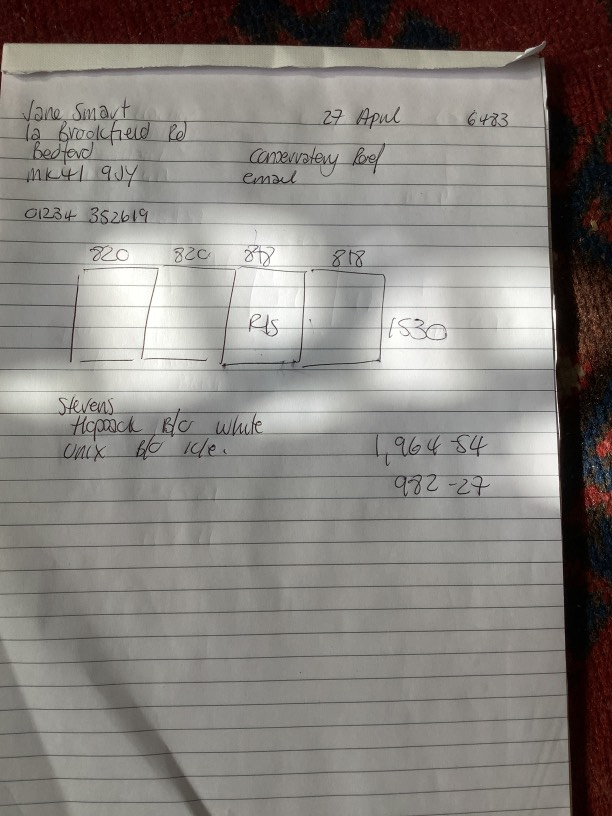 Jane Smart
1a Brookfield Rd
Bedford
MK41 9JY
01234 352619
27 April 6483
Conservatory Roof
email
820 820 818 818
R/S
1530
Stevens
Hopsack B/O White
Unix B/O
1,964-54
982-27